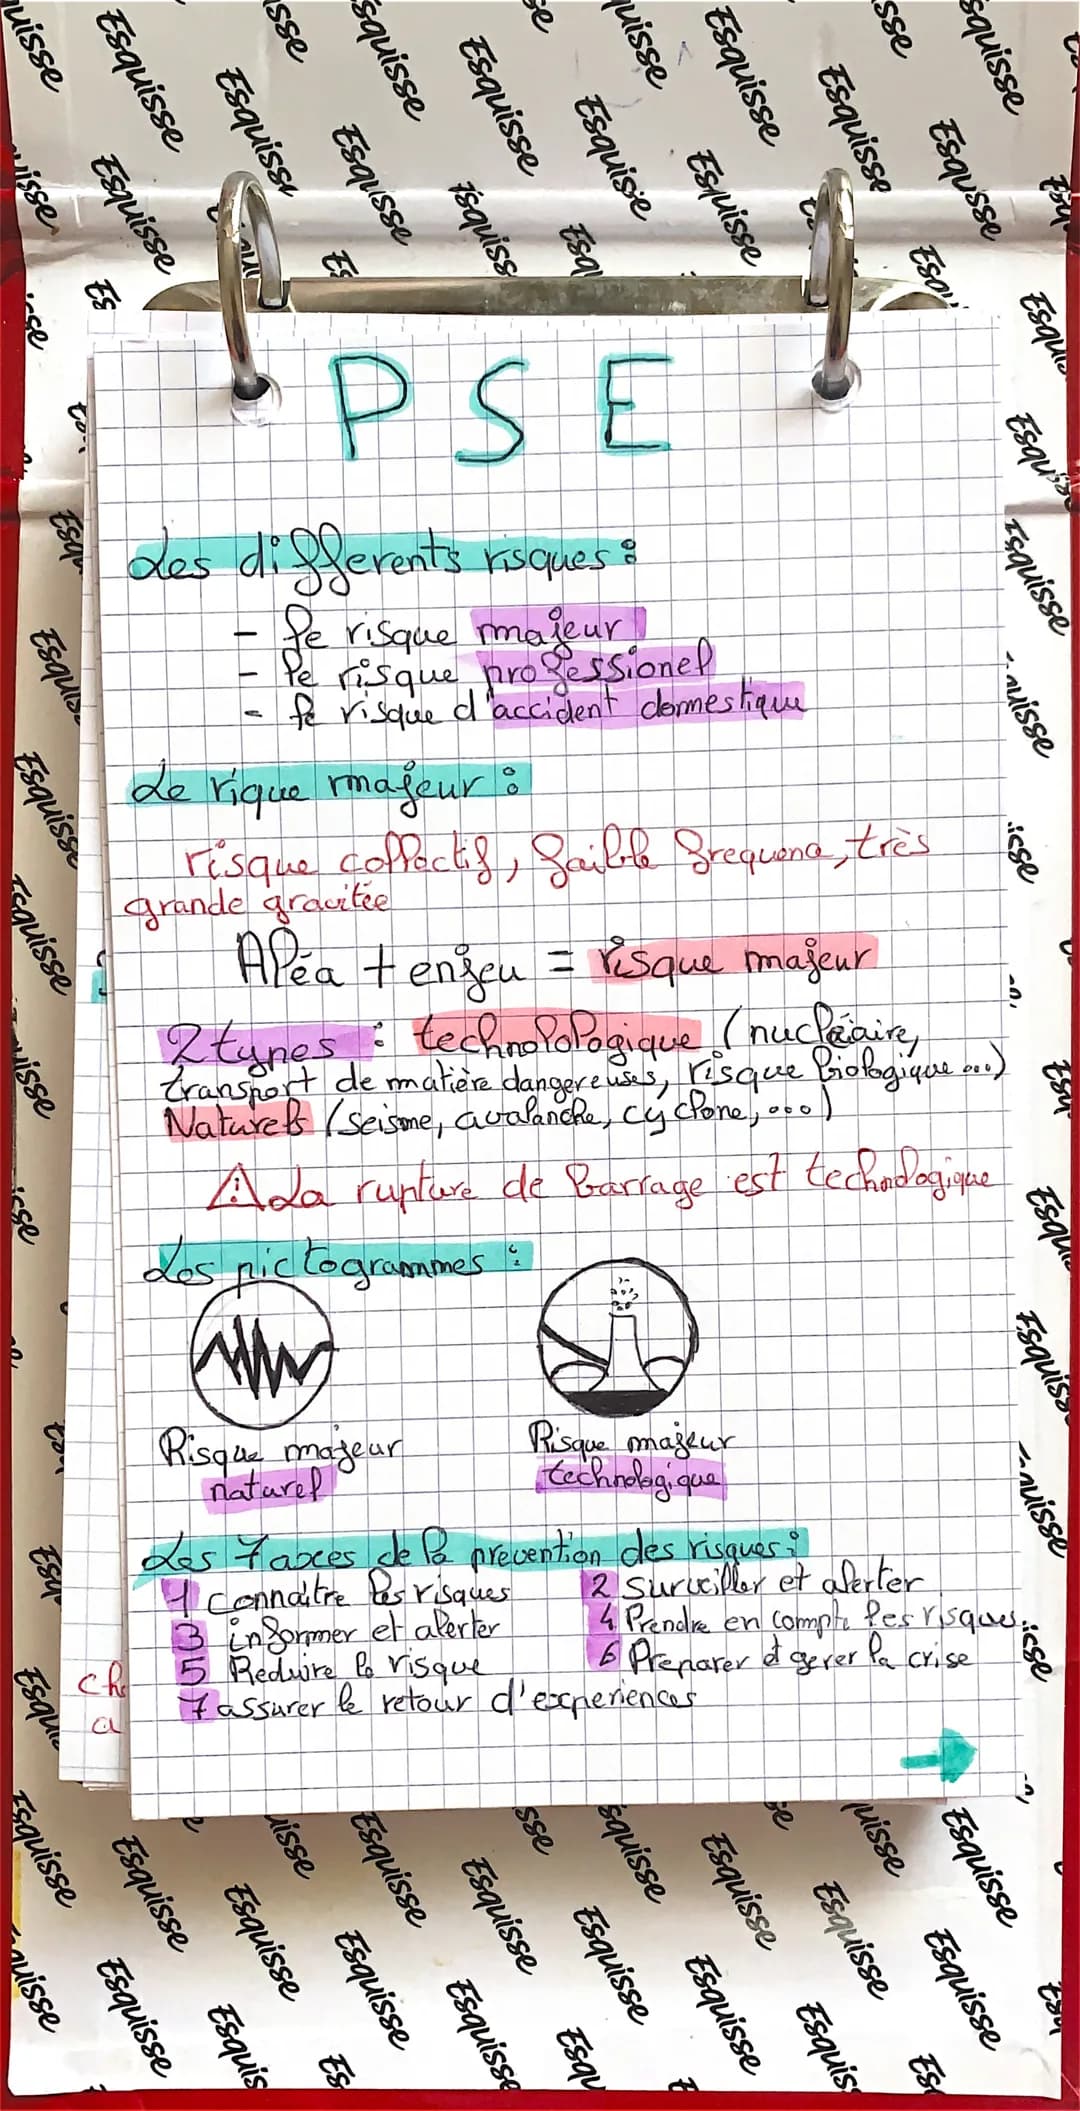 PSE
Les differents risques :
- le risque majeur
- le risque professionel
- le risque d'accident domestique
Le rique majeur :
risque collectif, faible frequena, très
grande gravitée
Aléa + enjeu = risque majeur
2 types : technolologique (nucléaire,
transport de matière dangereuses, risque biologique ...)
Naturels (seisme, avalanche, cyclone, ...)
⚠ La rupture de barrage est technologique
Les pictogrammes :
Risque majeur
naturel
Risque majeur
technologique
Les 7 axces de la prevention des risques :
1 connaître les risques
2 surveiller et alerter
3 informer et alerter
4 Prendre en compte les risques.
5 Reduire le risque
6 Preparer et gerer la crise
7 assurer le retour d'experiences
Esquisse